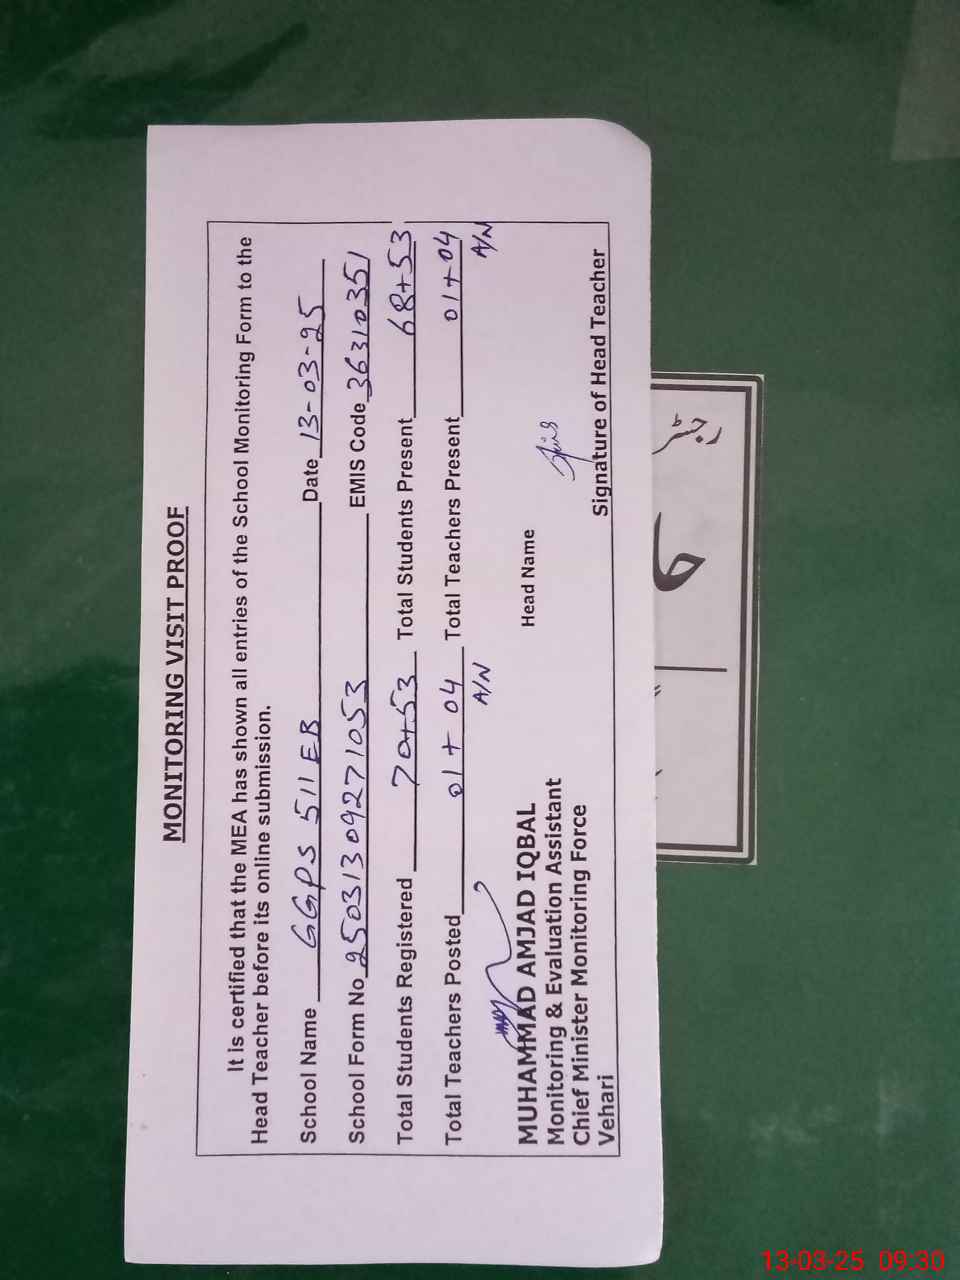 MONITORING VISIT PROOF
It is certified that the MEA has shown all entries of the School Monitoring Form to the
Head Teacher before its online submission.
School Name GGPS 511 EB Date 13-03-25
School Form No 25031309271053 EMIS Code 36310351
Total Students Registered 70+53 Total Students Present 68+53
Total Teachers Posted 01+04 Total Teachers Present 01+04
A/N A/N
MUHAMMAD AMJAD IQBAL Head Name
Monitoring & Evaluation Assistant
Chief Minister Monitoring Force
Vehari Signature of Head Teacher
رجسٹر
حا
13-03-25 09:30